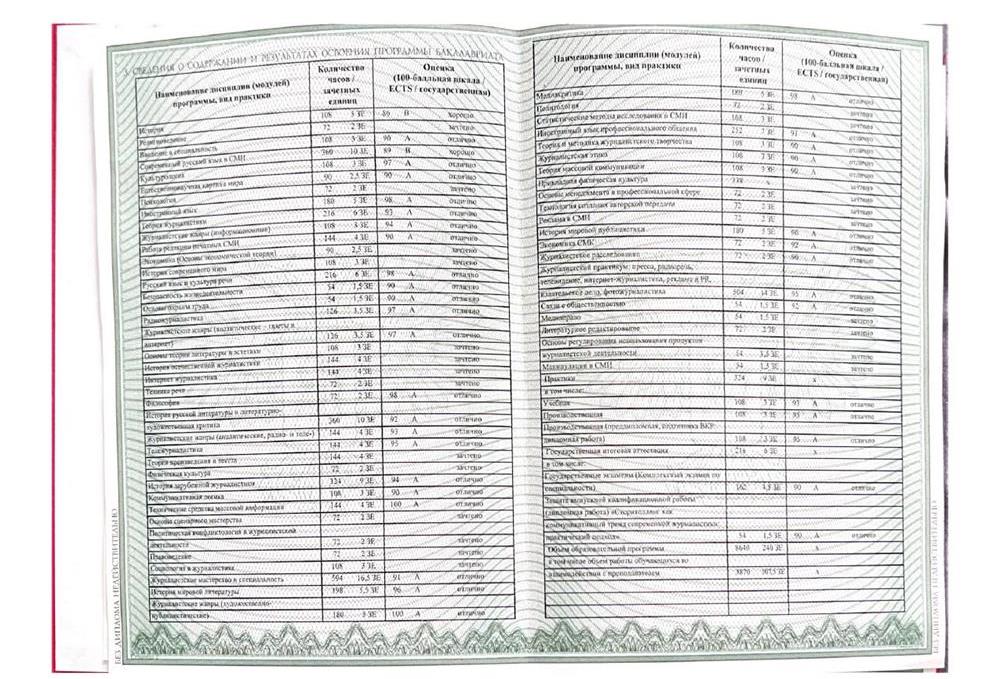 3. СВЕДЕНИЯ О СОДЕРЖАНИИ И РЕЗУЛЬТАТАХ ОСВОЕНИЯ ПРОГРАММЫ БАКАЛАВРИАТА
Наименование дисциплин (модулей) программы, вид практики
Количество часов / зачетных единиц
Оценка (100-балльная шкала / ECTS / государственная)
История 108 3 ЗЕ B хорошо
Религиоведение 72 2 ЗЕ зачтено
Введение в специальность 108 3 ЗЕ 90 A отлично
Современный русский язык в СМИ 360 10 ЗЕ 89 B хорошо
Культурология 108 3 ЗЕ 97 A отлично
Естественнонаучная картина мира 90 2,5 ЗЕ 90 A отлично
Психология 72 2 ЗЕ зачтено
Иностранный язык 180 5 ЗЕ 98 A отлично
Теория журналистики 216 6 ЗЕ 93 A отлично
Журналистские жанры (информационные) 108 3 ЗЕ 94 A отлично
Работа редакции печатных СМИ 144 4 ЗЕ 90 A отлично
Экономика (основы экономической теории) 90 2,5 ЗЕ зачтено
История современного мира 108 3 ЗЕ зачтено
Русский язык и культура речи 216 6 ЗЕ 98 A отлично
Безопасность жизнедеятельности 54 1,5 ЗЕ 90 A отлично
Основы охраны труда 54 1,5 ЗЕ 90 A отлично
Радиожурналистика 126 3,5 ЗЕ 97 A отлично
Журналистские жанры (аналитические - газеты и
интернет) 126 3,5 ЗЕ 97 A отлично
Основы теории литературы и эстетики 108 3 ЗЕ зачтено
История отечественной журналистики 144 4 ЗЕ зачтено
Интернет журналистика 144 4 ЗЕ зачтено
Техника речи 72 2 ЗЕ зачтено
Философия 72 2 ЗЕ 98 A отлично
История русской литературы и литературно-
художественная критика 360 10 ЗЕ 92 A отлично
Журналистские жанры (аналитические, радио- и теле-) 144 4 ЗЕ 93 A отлично
Тележурналистика 144 4 ЗЕ 95 A отлично
Теория произведения и текста 144 4 ЗЕ зачтено
Физическая культура 72 2 ЗЕ зачтено
История зарубежной журналистики 324 9 ЗЕ 94 A отлично
Коммуникативная логика 108 3 ЗЕ 90 A отлично
Технические средства массовой информации 144 4 ЗЕ 100 A отлично
Основы сценарного мастерства 72 2 ЗЕ зачтено
Политическая конфликтология в журналистской
деятельности 72 2 ЗЕ зачтено
Правоведение 72 2 ЗЕ зачтено
Социология в журналистике 108 3 ЗЕ зачтено
Журналистское мастерство и специальность 594 16,5 ЗЕ 91 A отлично
История мировой литературы 198 5,5 ЗЕ 96 A отлично
Журналистские жанры (художественно-
публицистические) 180 5 ЗЕ 100 A отлично
БЕЗ ДИПЛОМА НЕДЕЙСТВИТЕЛЬНО
Наименование дисциплин (модулей) программы, вид практики
Количество часов / зачетных единиц
Оценка (100-балльная шкала / ECTS / государственная)
Медиакритика 5 ЗЕ 98 A отлично
Политология 72 2 ЗЕ зачтено
Статистические методы исследования о СМИ 108 3 ЗЕ зачтено
Иностранный язык профессионального общения 252 7 ЗЕ 91 A отлично
Теория и методика журналистского творчества 108 3 ЗЕ 90 A отлично
Журналистская этика 108 3 ЗЕ 90 A отлично
Теория массовой коммуникации 108 3 ЗЕ 90 A отлично
Прикладная физическая культура х зачтено
Основы менеджмента в профессиональной сфере 72 2 ЗЕ зачтено
Технология создания авторской передачи 72 2 ЗЕ зачтено
Реклама в СМИ 72 2 ЗЕ зачтено
История мировой публицистики 180 5 ЗЕ 90 A отлично
Экономика СМК 72 2 ЗЕ 92 A отлично
Журналистское расследование 72 2 ЗЕ 90 A отлично
Журналистский практикум: пресса, радиоречь,
телевидение, интернет-журналистика, реклама и PR,
издательское дело, фотожурналистика 504 14 ЗЕ 95 A отлично
Связи с общественностью 54 1,5 ЗЕ 92 A отлично
Медиаправо 54 1,5 ЗЕ зачтено
Литературное редактирование 72 2 ЗЕ зачтено
Основы регулирования использования продуктов
журналистской деятельности 54 1,5 ЗЕ зачтено
Манипуляция в СМИ 54 1,5 ЗЕ зачтено
Практики 324 9 ЗЕ х
в том числе:
Учебная 108 3 ЗЕ 93 A отлично
Производственная 108 3 ЗЕ 95 A отлично
Производственная (преддипломная, подготовка ВКР:
дипломная работа) 108 3 ЗЕ 95 A отлично
Государственная итоговая аттестация 216 6 ЗЕ х
в том числе:
Государственные экзамены (Комплексный экзамен по
специальности) 162 4,5 ЗЕ 90 A отлично
Защита выпускной квалификационной работы
(дипломная работа) «Сторителлинг как
коммуникативный тренд современной журналистики:
практический подход» 54 1,5 ЗЕ 90 A отлично
Объем образовательной программы 8640 240 ЗЕ х
в том числе объем работы обучающихся во
взаимодействии с преподавателем 3870 107,5 ЗЕ х
БЕЗ ДИПЛОМА НЕДЕЙСТВИТЕЛЬНО